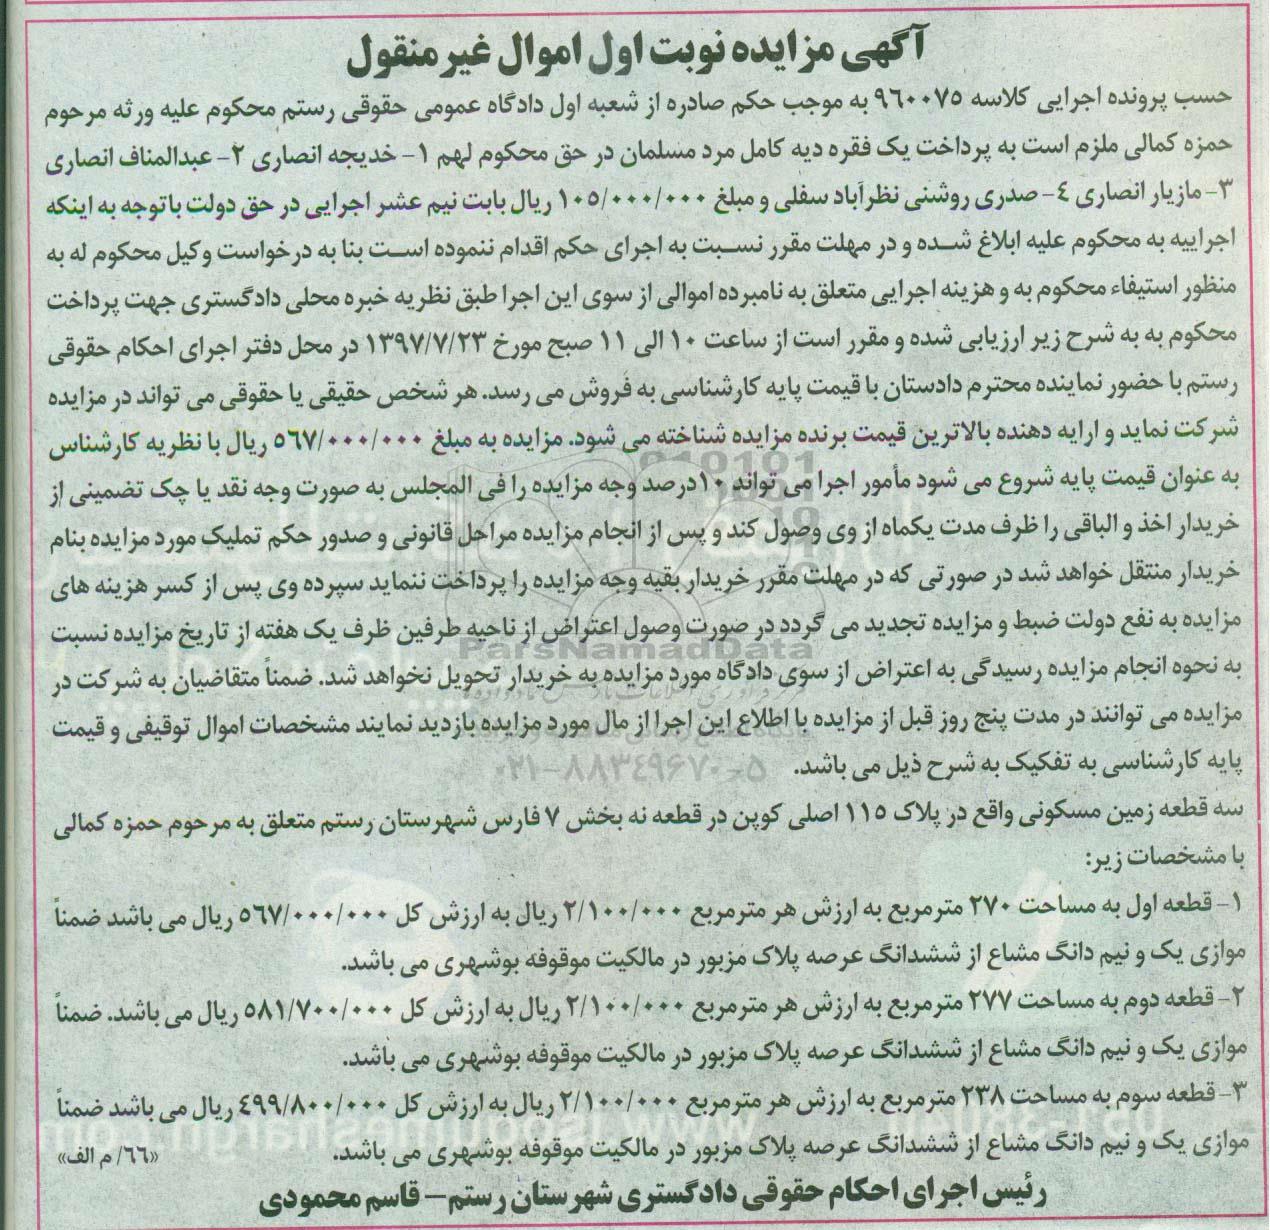 آگهی مزایده نوبت اول اموال غیر منقول
حسب پرونده اجرایی کلاسه ۹۶۰۰۷۵ به موجب حکم صادره از شعبه اول دادگاه عمومی حقوقی رستم محکوم علیه ورثه مرحوم
حمزه کمالی ملزم است به پرداخت یک فقره دیه کامل مرد مسلمان در حق محکوم لهم ۱- خدیجه انصاری ۲- عبدالمناف انصاری
۳- مازیار انصاری ٤- صدری روشنی نظرآباد سفلی و مبلغ ۱۰۵/۰۰۰/۰۰۰ ریال بابت نیم عشر اجرایی در حق دولت با توجه به اینکه
اجراییه به محکوم علیه ابلاغ شده و در مهلت مقرر نسبت به اجرای حکم اقدام ننموده است بنا به درخواست وکیل محکوم له به
منظور استیفاء محکوم به و هزینه اجرایی متعلق به نامبرده اموالی از سوی این اجرا طبق نظریه خبره محلی دادگستری جهت پرداخت
محکوم به به شرح زیر ارزیابی شده و مقرر است از ساعت ۱۰ الی ۱۱ صبح مورخ ۱۳۹۷/۷/۲۳ در محل دفتر اجرای احکام حقوقی
رستم با حضور نماینده محترم دادستان با قیمت پایه کارشناسی به فروش می رسد. هر شخص حقیقی یا حقوقی می تواند در مزایده
شرکت نماید و ارایه دهنده بالاترین قیمت برنده مزایده شناخته می شود. مزایده به مبلغ ۵٦۷/۰۰۰/۰۰۰ ریال با نظریه کارشناس
به عنوان قیمت پایه شروع می شود مأمور اجرا می تواند ۱۰درصد وجه مزایده را فی المجلس به صورت وجه نقد یا چک تضمینی از
خریدار اخذ و الباقی را ظرف مدت یکماه از وی وصول کند و پس از انجام مزایده مراحل قانونی و صدور حکم تملیک مورد مزایده بنام
خریدار منتقل خواهد شد در صورتی که در مهلت مقرر خریدار بقیه وجه مزایده را پرداخت ننماید سپرده وی پس از کسر هزینه های
مزایده به نفع دولت ضبط و مزایده تجدید می گردد در صورت وصول اعتراض از ناحیه طرفین ظرف یک هفته از تاریخ مزایده نسبت
ParsNamadData
به نحوه انجام مزایده رسیدگی به اعتراض از سوی دادگاه مورد مزایده به خریدار تحویل نخواهد شد. ضمناً متقاضیان به شرکت در
مزایده می توانند در مدت پنج روز قبل از مزایده با اطلاع این اجرا از مال مورد مزایده بازدید نمایند مشخصات اموال توقیفی و قیمت
پایه کارشناسی به تفکیک به شرح ذیل می باشد.
۰۲۱-۸۸۳۴۹۶۷۰-۵
سه قطعه زمین مسکونی واقع در پلاک ۱۱۵ اصلی کوپن در قطعه نه بخش ۷ فارس شهرستان رستم متعلق به مرحوم حمزه کمالی
با مشخصات زیر:
۱- قطعه اول به مساحت ۲۷۰ مترمربع به ارزش هر مترمربع ۲/۱۰۰/۰۰۰ ریال به ارزش کل ۵٦۷/۰۰۰/۰۰۰ ریال می باشد ضمناً
موازی یک و نیم دانگ مشاع از ششدانگ عرصه پلاک مزبور در مالکیت موقوفه بوشهری می باشد.
۲- قطعه دوم به مساحت ۲۷۷ مترمربع به ارزش هر مترمربع ۲/۱۰۰/۰۰۰ ریال به ارزش کل ۵۸۱/۷۰۰/۰۰۰ ریال می باشد. ضمناً
موازی یک و نیم دانگ مشاع از ششدانگ عرصه پلاک مزبور در مالکیت موقوفه بوشهری می باشد.
۳- قطعه سوم به مساحت ۲۳۸ مترمربع به ارزش هر مترمربع ۲/۱۰۰/۰۰۰ ریال به ارزش کل ٤۹۹/۸۰۰/۰۰۰ ریال می باشد ضمناً
موازی یک و نیم دانگ مشاع از ششدانگ عرصه پلاک مزبور در مالکیت موقوفه بوشهری می باشد. «٦٦/ م الف»
رئیس اجرای احکام حقوقی دادگستری شهرستان رستم– قاسم محمودی